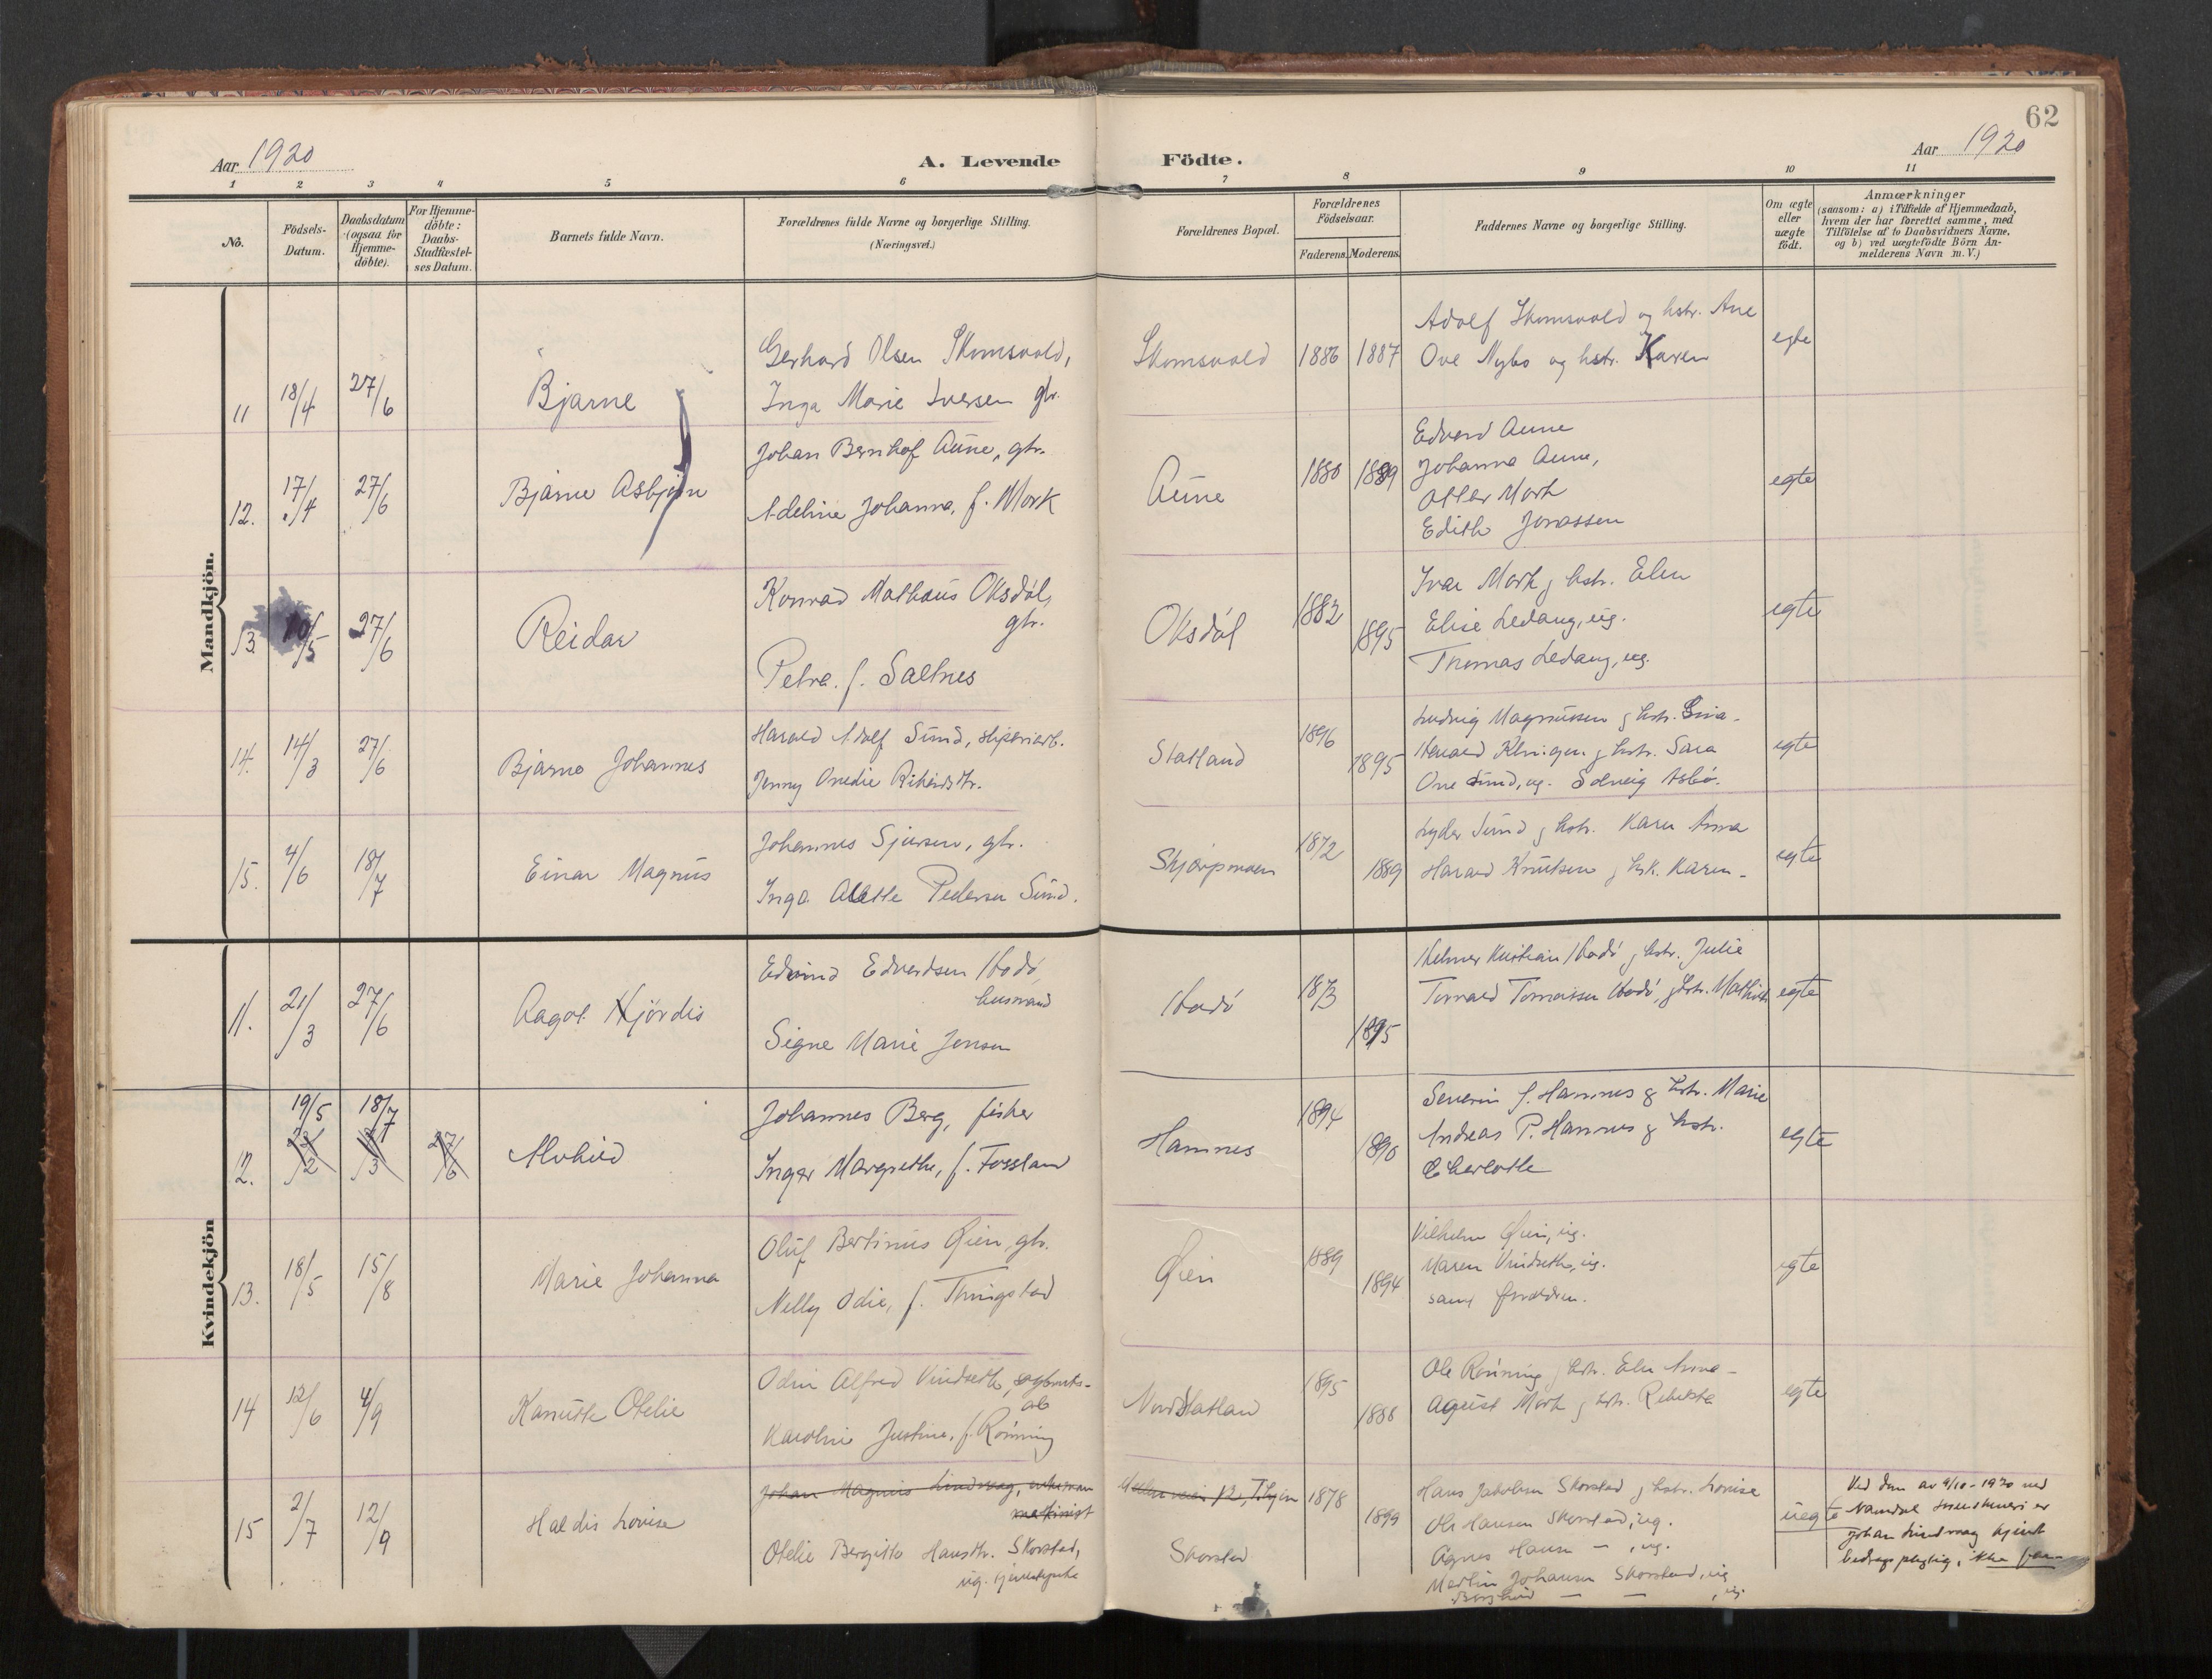 62
Aar 1920
A. Levende Födte.
Aar 1920
1 2 3 4 5 6 7 8 9 10 11
No.
Födsels-
Datum.
Daabsdatum
(ogsaa for
Hjemme-
döbte).
For Hjemme-
döbte:
Daabs-
Stadfæstel-
ses Datum.
Barnets fulde Navn.
Forældrenes fulde Navne og borgerlige Stilling.
(Næringsvei.)
Forældrenes Bopæl.
Forældrenes
Födselsaar.
Faderens. Moderens.
Faddernes Navne og borgerlige Stilling.
Om ægte
eller
uægte
födt.
Anmærkninger
(saasom: a) i Tilfælde af Hjemmedaab,
hvem der har forrettet samme, med
Tilföielse af to Daabsvidners Navne,
og b) ved uægtefödte Börn An-
melderens Navn m. V.)
Mandkjön.
11 18/4 27/6 Bjarne
Gerhard Olsen Skomsvold,
Inga Marie Iversen gbr.
Skomsvold 1886 1887
Adolf Skomsvold og hstr. Ane
Ove Nybo og hstr. Karen
egte
12. 17/4 27/6 Bjarne Asbjørn
Johan Bernhof Aune, gbr.
Adeline Johanna, f. Mork
Aune 1880 1889
Edvard Aune
Johanna Aune,
Ottar Mork
Edith Jonassen
egte
13. 10/5 27/6 Reidar
Konrad Mathæus Oksdøl,
gbr.
Petra f. Saltnes
Oksdøl 1882 1895
Ivar Mork og hstr. Elen
Elise Ledang, ug.
Thomas Ledang, ug.
egte
14. 14/3 27/6 Bjarne Johannes
Harald Adolf Sund,
Jenny Onedie
Statland 1896 1895
Ludvig Magnussen og hstr.
Harald Klingen og hstr. Sara
Ove Sund, ug. Solveig Asbø.
egte
15. 4/6 18/7 Einar Magnus
Johannes Sjursen, gbr.
Inga Alette Pedersen Sund.
Skjærpmoen 1872 1889
Lyder Sund og hstr. Karen Anna
Harald Knutsen og hstr. Karen
egte
Kvindekjön
11. 21/3 27/6 Aagot Hjørdis
Edvind Edvardsen Hodø,
husmand
Signe Marie Jensen
Hodø 1873 1895
Helmer Kristian Hodø og hstr. Julie
Hodø, og hstr.
egte
12. 19/5 18/7 Alvhild
22/2 27/6
Johannes Berg, fisker
Inger Margrethe, f. Fossland
Hamnes 1894 1890
Severin J. Hamnes og hstr. Marie
Andreas P. Hamnes og hstr.
Charlotte
egte
13. 18/5 15/8 Marie Johanna
Oluf Bertinus Øien, gbr.
Nelly Odie, f. Thingstad
Øien 1889 1894
Vilhelm Øien, ug.
Maren Vindseth, ug.
samt foreldren.
egte
14 12/6 4/9 Kanutte Otelie
Odin Alfred Vindseth,
Karoline Justine, f. Rønning
Nordstatland 1895 1888
Ole Rønning og hstr. Elen Anna
August Mork og hstr. Rebekka
egte
15 2/7 12/9 Haldis Lovise
Johan Magnus Lindvaag,
maskinist
Otelie Bergitte Hansdtr. Skorstad,
ug. tjenestepike
Skorstad 1878 1899
Hans Jakobsen Skorstad og hstr. Lovise
Ole Hansen Skorstad, ug.
Agnes Hansen — , ug.
Martin Johansen Skorstad, ug
— — , ug.
uegte
Ved dom av 9/10 - 1920 ved
Namdal er
Johan Lindvaag kjent
bidragspligtig, ikke far